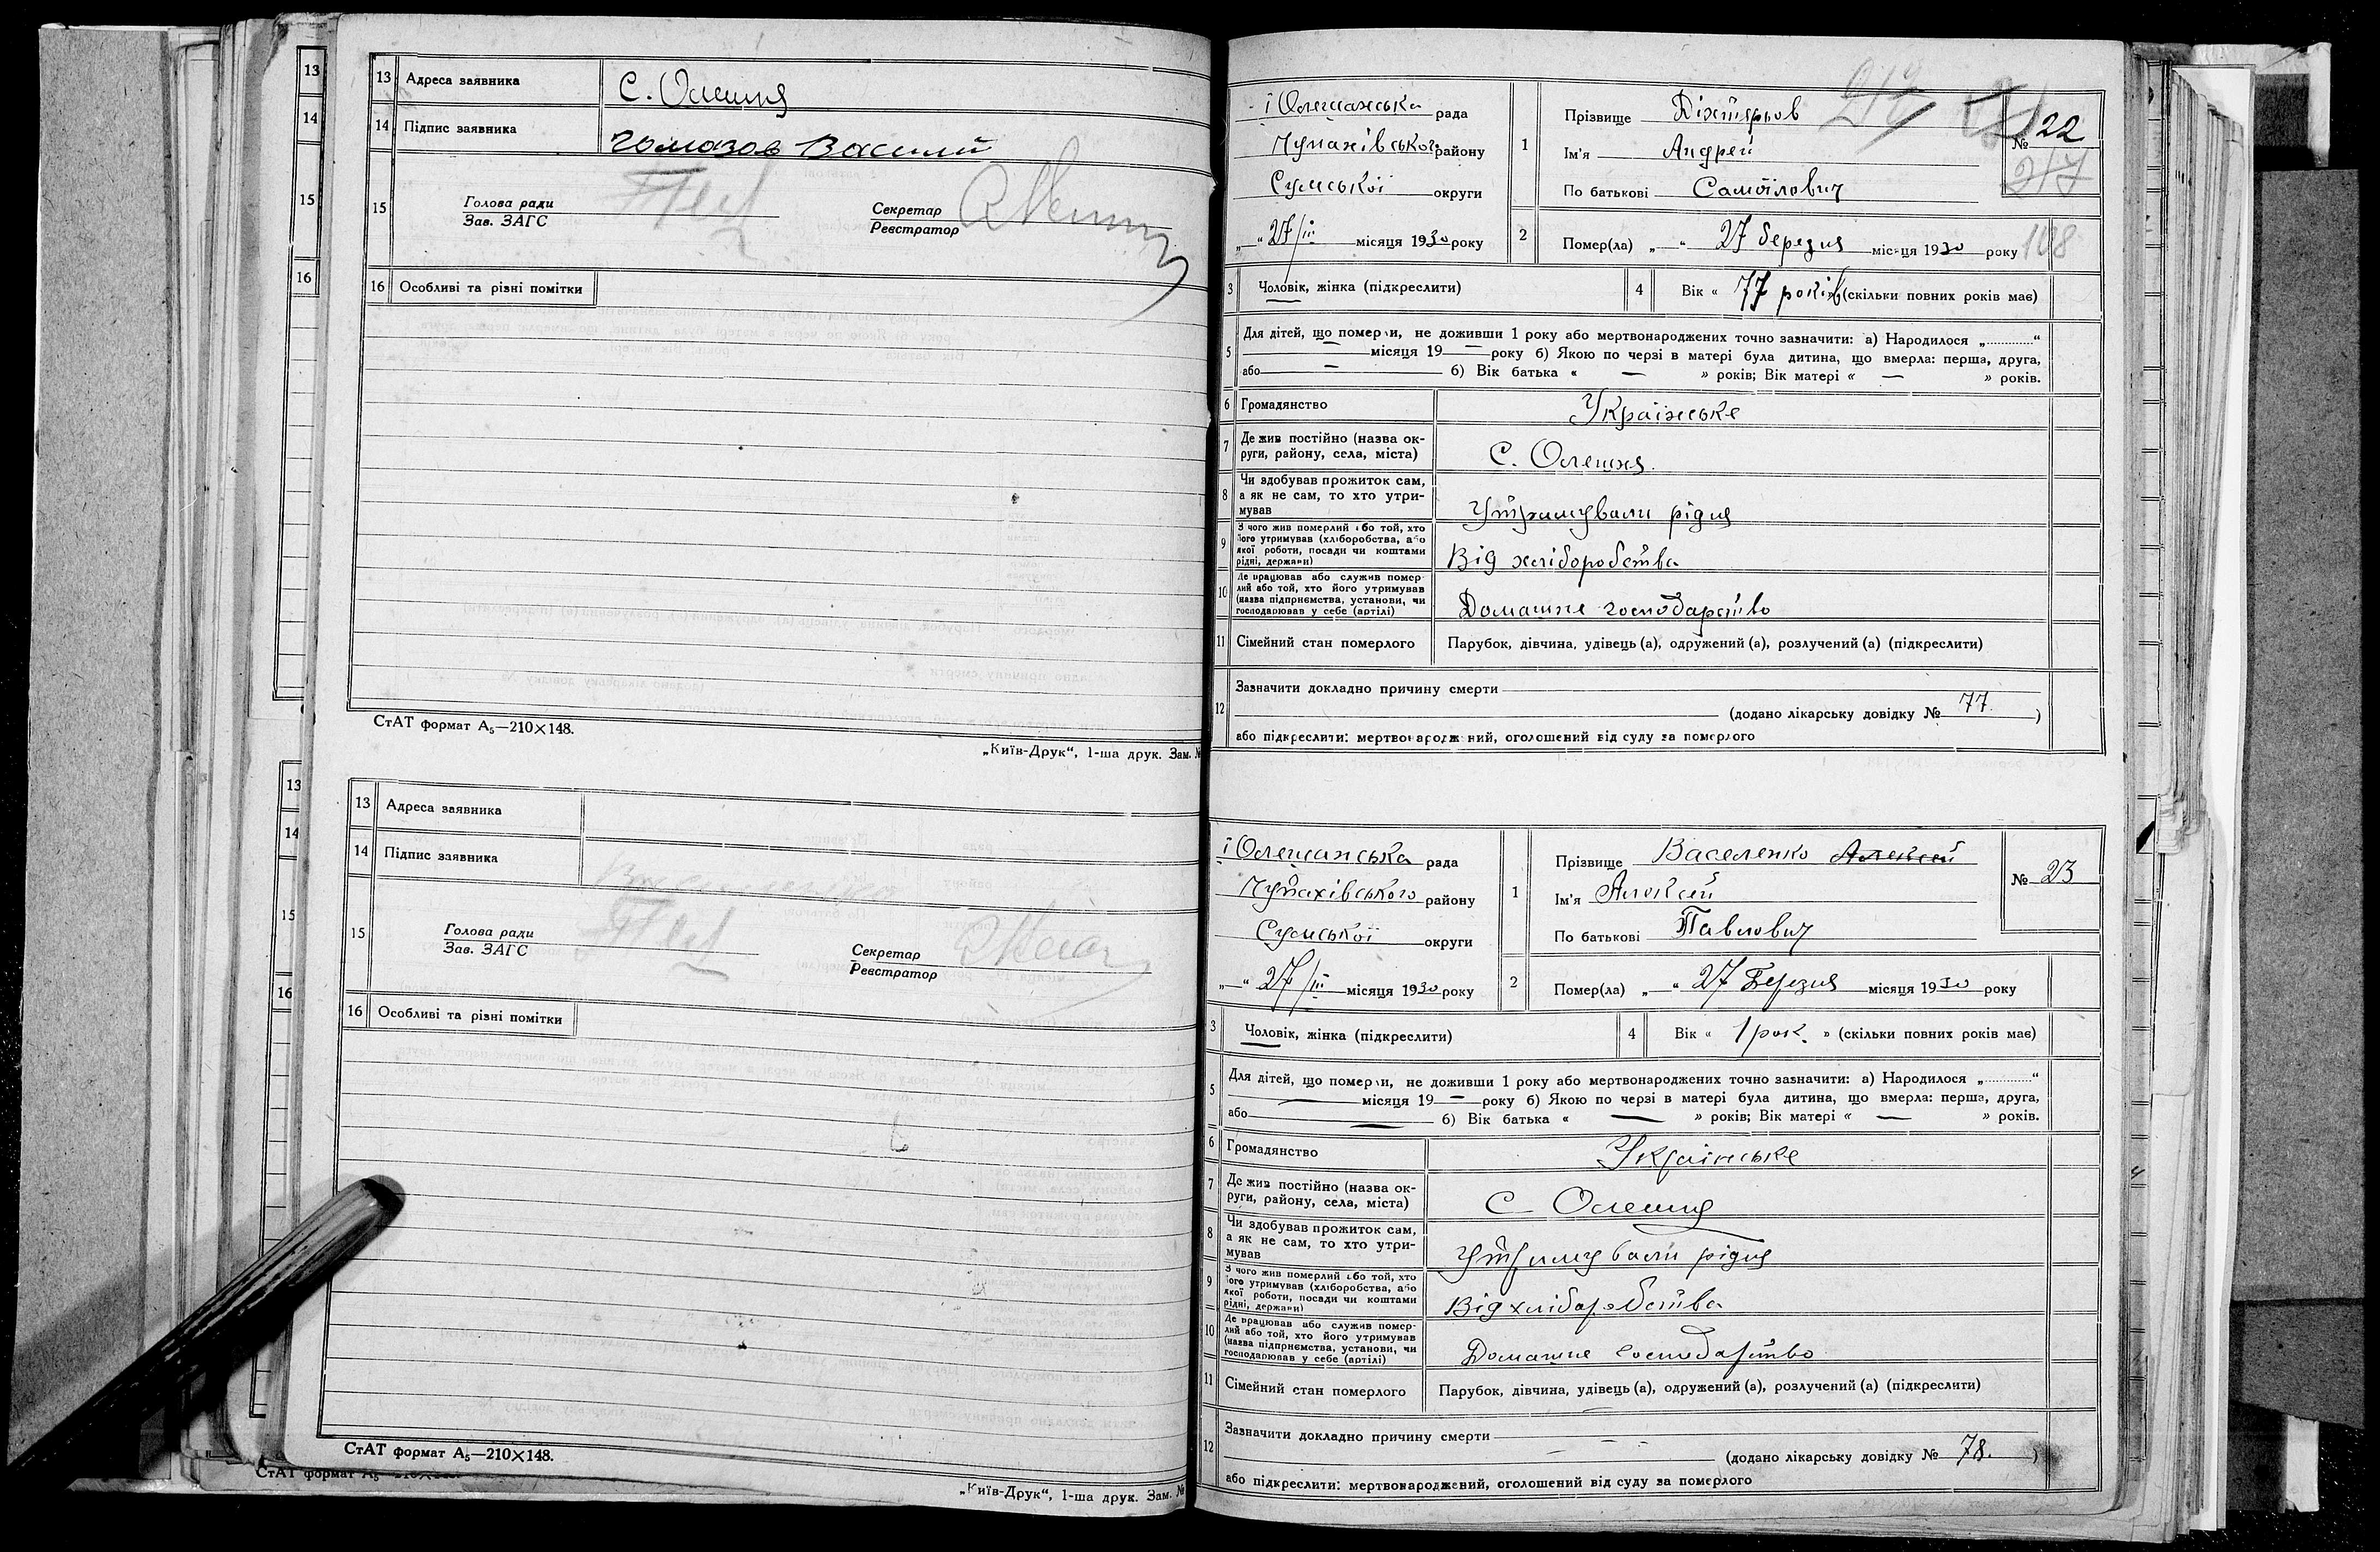 13 Адреса заявника С. Олешня
14 Підпис заявника Василій
15 Голова ради
Зав. ЗАГС
Секретар
Реєстратор
16 Особливі та різні помітки
СтАТ формат А5—210×148.
„Київ-Друк“, 1-ша друк. Зам. №
13 Адреса заявника
14 Підпис заявника
15 Голова ради
Зав. ЗАГС
Секретар
Реєстратор
16 Особливі та різні помітки
СтАТ формат А5—210×148.
„Київ-Друк“, 1-ша друк. Зам. №
13
14
15
16
13
14
15
16
СтАТ формат
і Олешанська рада
Чупахівського району
Сумської округи
„—“ 27/III місяця 1930 року
1 Прізвище Діхтярьов
Ім'я Андрей
По батькові Самойлович
№ 22
217
2 Помер(ла) „—“ 27 березня місяця 1930 року
108
3 Чоловік, жінка (підкреслити)
4 Вік « 77 років » (скільки повних років має)
5 Для дітей, що померли, не доживши 1 року або мертвонароджених точно зазначити: а) Народилося „............“
— місяця 19 — року б) Якою по черзі в матері була дитина, що вмерла: перша, друга,
або — б) Вік батька « — » років; Вік матері « — » років.
6 Громадянство Українське
7 Де жив постійно (назва ок-
руги, району, села, міста) С. Олешня.
8 Чи здобував прожиток сам,
а як не сам, то хто утри-
мував Утримували рідня
9 З чого жив померлий або той, хто
його утримував (хліборобства, або
якої роботи, посади чи коштами
рідні, держави) Від хліборобства
10 Де працював або служив помер-
лий або той, хто його утримував
(назва підприємства, установи, чи
господарював у себе (артілі) Домашнє господарство
11 Сімейний стан померлого Парубок, дівчина, удівець (а), одружений (а), розлучений (а) (підкреслити)
12 Зазначити докладно причину смерти
(додано лікарську довідку № 77. )
або підкреслити: мертвонароджений, оголошений від суду за померлого
і Олешанська рада
Чупахівського району
Сумської округи
„—“ 27/III місяця 1930 року
1 Прізвище Василенко Алексей
Ім'я Алексей
По батькові Павлович
№ 23
2 Помер(ла) „—“ 27 Березня місяця 1930 року
3 Чоловік, жінка (підкреслити)
4 Вік « 1 рок. » (скільки повних років має)
5 Для дітей, що померли, не доживши 1 року або мертвонароджених точно зазначити: а) Народилося „............“
— місяця 19 — року б) Якою по черзі в матері була дитина, що вмерла: перша, друга,
або — б) Вік батька « — » років; Вік матері « — » років.
6 Громадянство Українське
7 Де жив постійно (назва ок-
руги, району, села, міста) С. Олешня
8 Чи здобував прожиток сам,
а як не сам, то хто утри-
мував Утримували рідня
9 З чого жив померлий або той, хто
його утримував (хліборобства, або
якої роботи, посади чи коштами
рідні, держави) Від хліборобства
10 Де працював або служив помер-
лий або той, хто його утримував
(назва підприємства, установи, чи
господарював у себе (артілі) Домашнє господарство
11 Сімейний стан померлого Парубок, дівчина, удівець (а), одружений (а), розлучений (а) (підкреслити)
12 Зазначити докладно причину смерти
(додано лікарську довідку № 78. )
або підкреслити: мертвонароджений, оголошений від суду за померлого